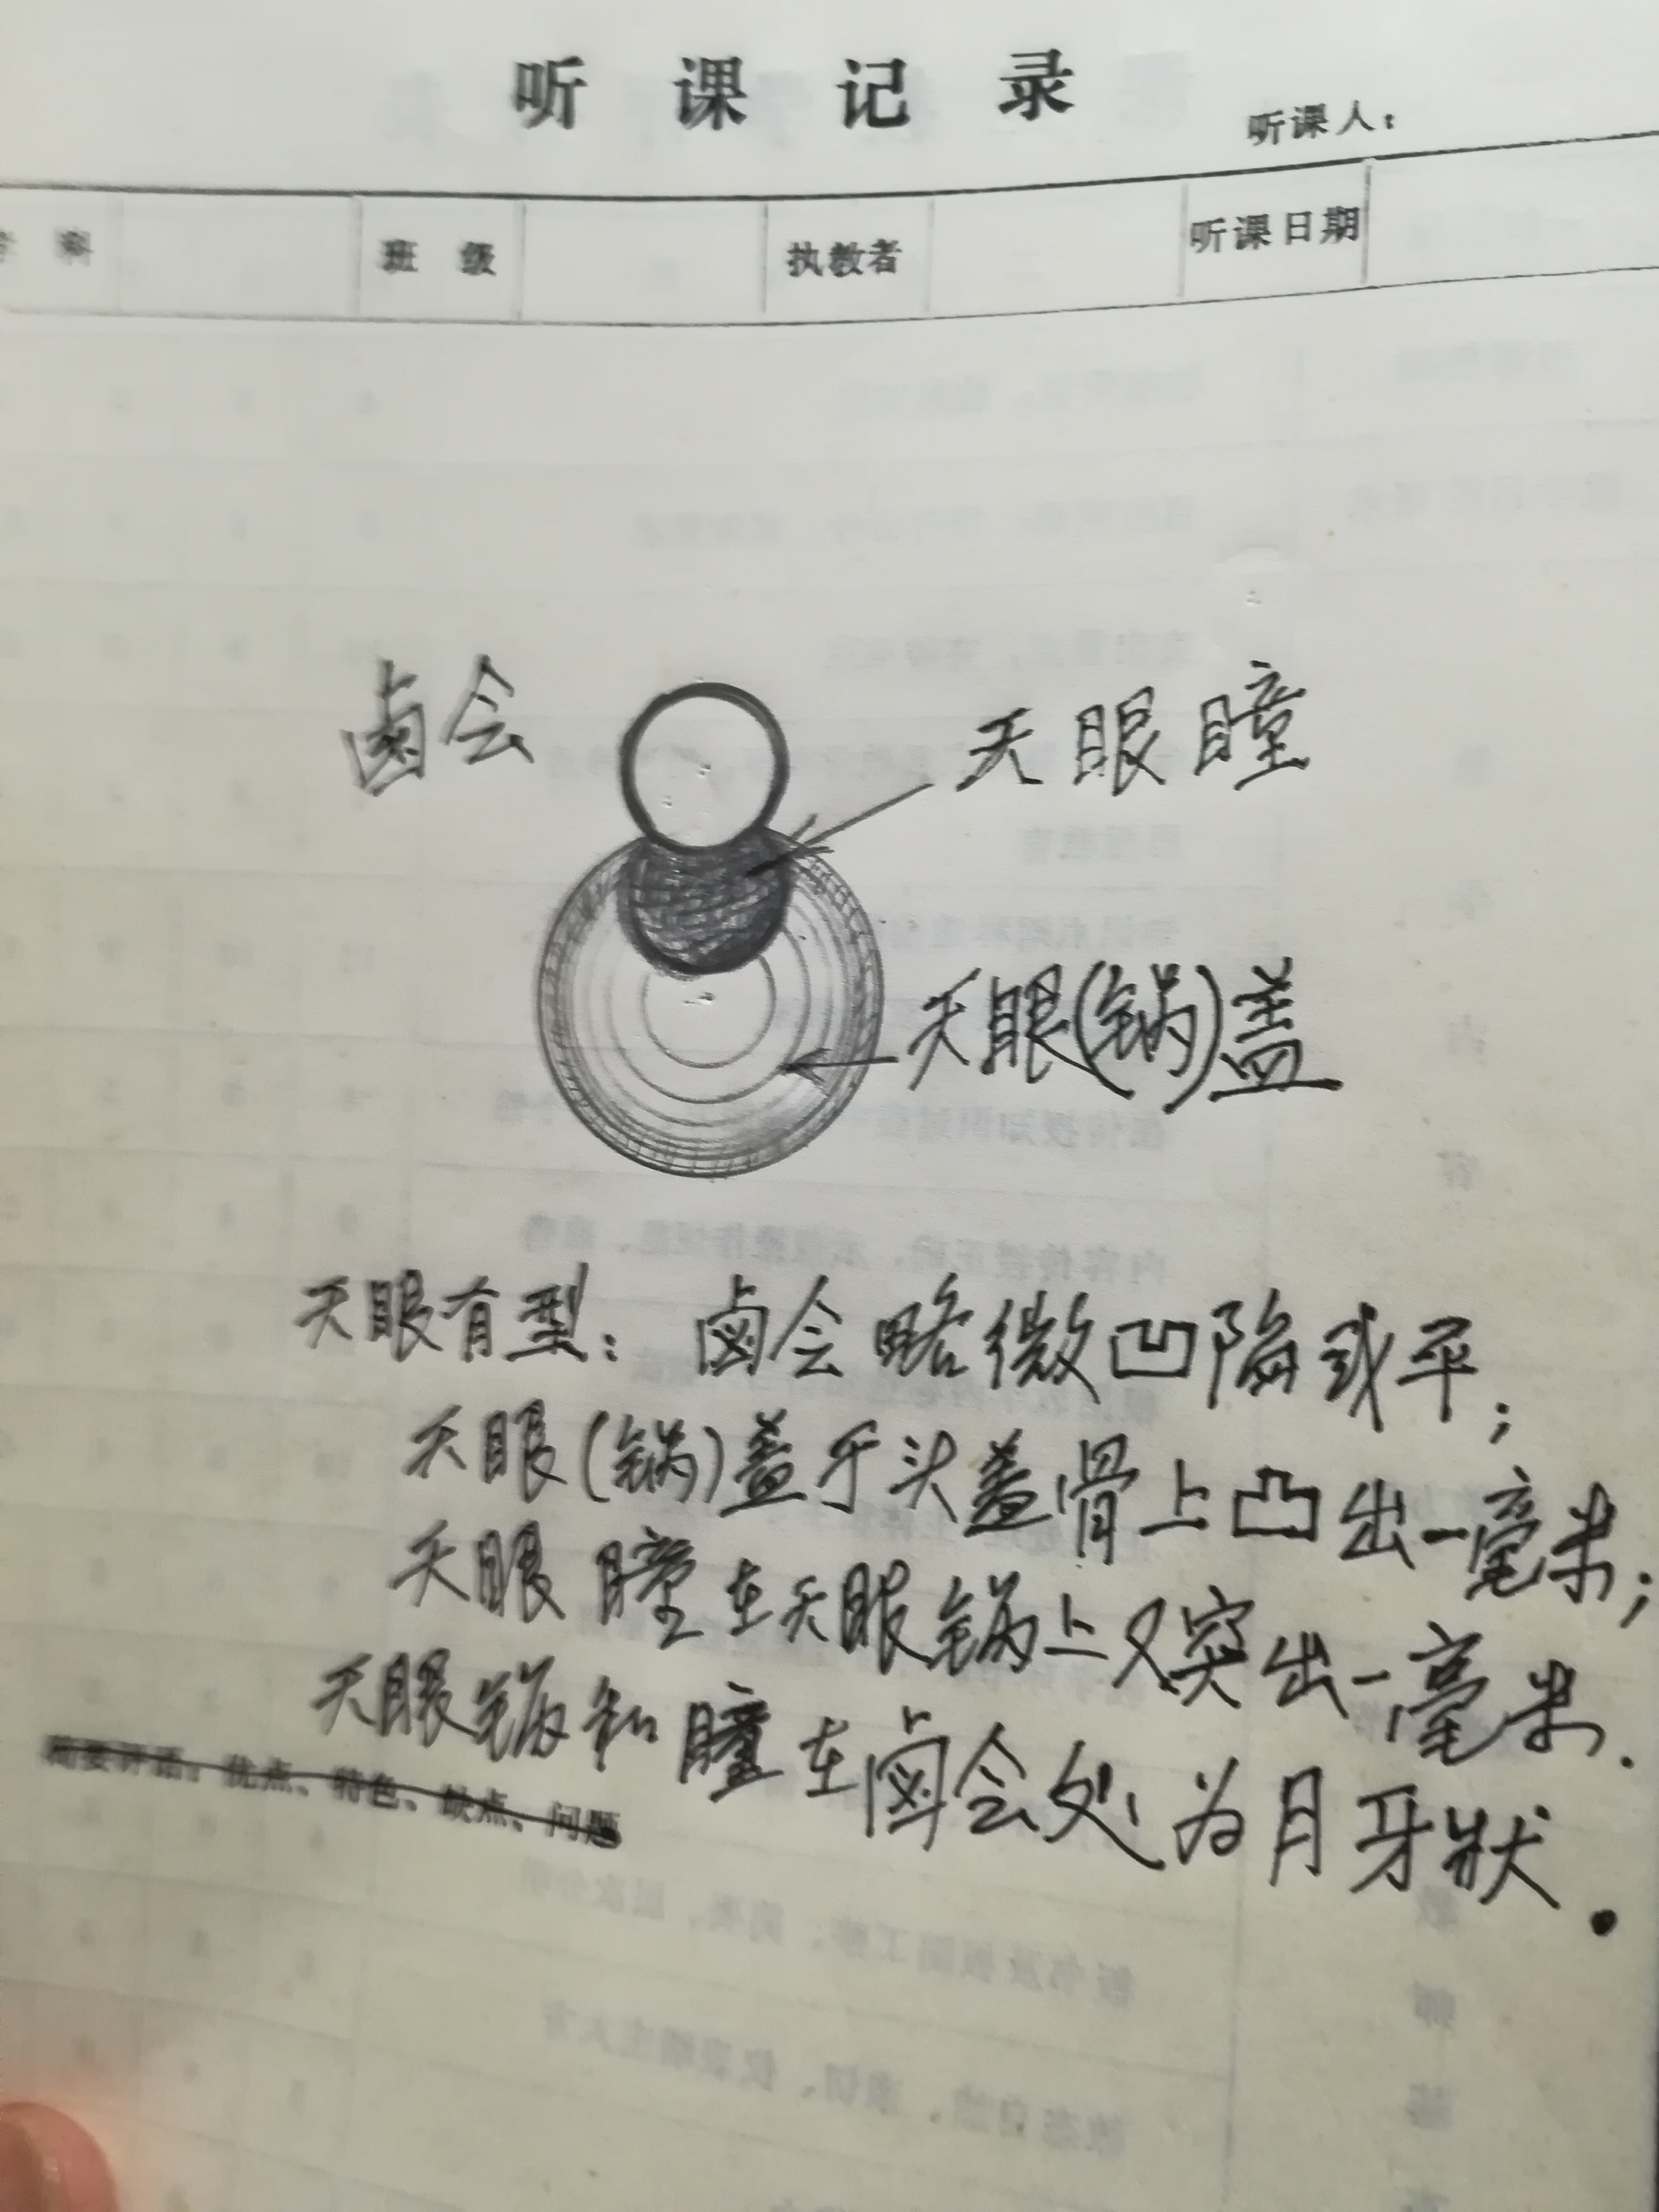 听课记录
听课人：
科 班级 执教者 听课日期
卤会
天眼瞳
天眼(锅)盖
天眼有型：卤会略微凹陷或平；
天眼(锅)盖于头盖骨上凸出一毫米；
天眼瞳在天眼锅上又突出一毫米.
天眼锅和瞳在卤会处为月牙状.
简要评语：优点、特色、缺点、问题